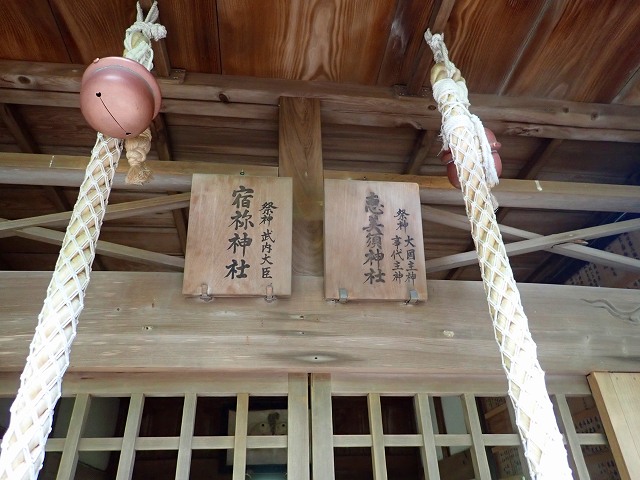 恵美須神社
祭神 大国主神
事代主神
宿祢神社
祭神 武内大臣